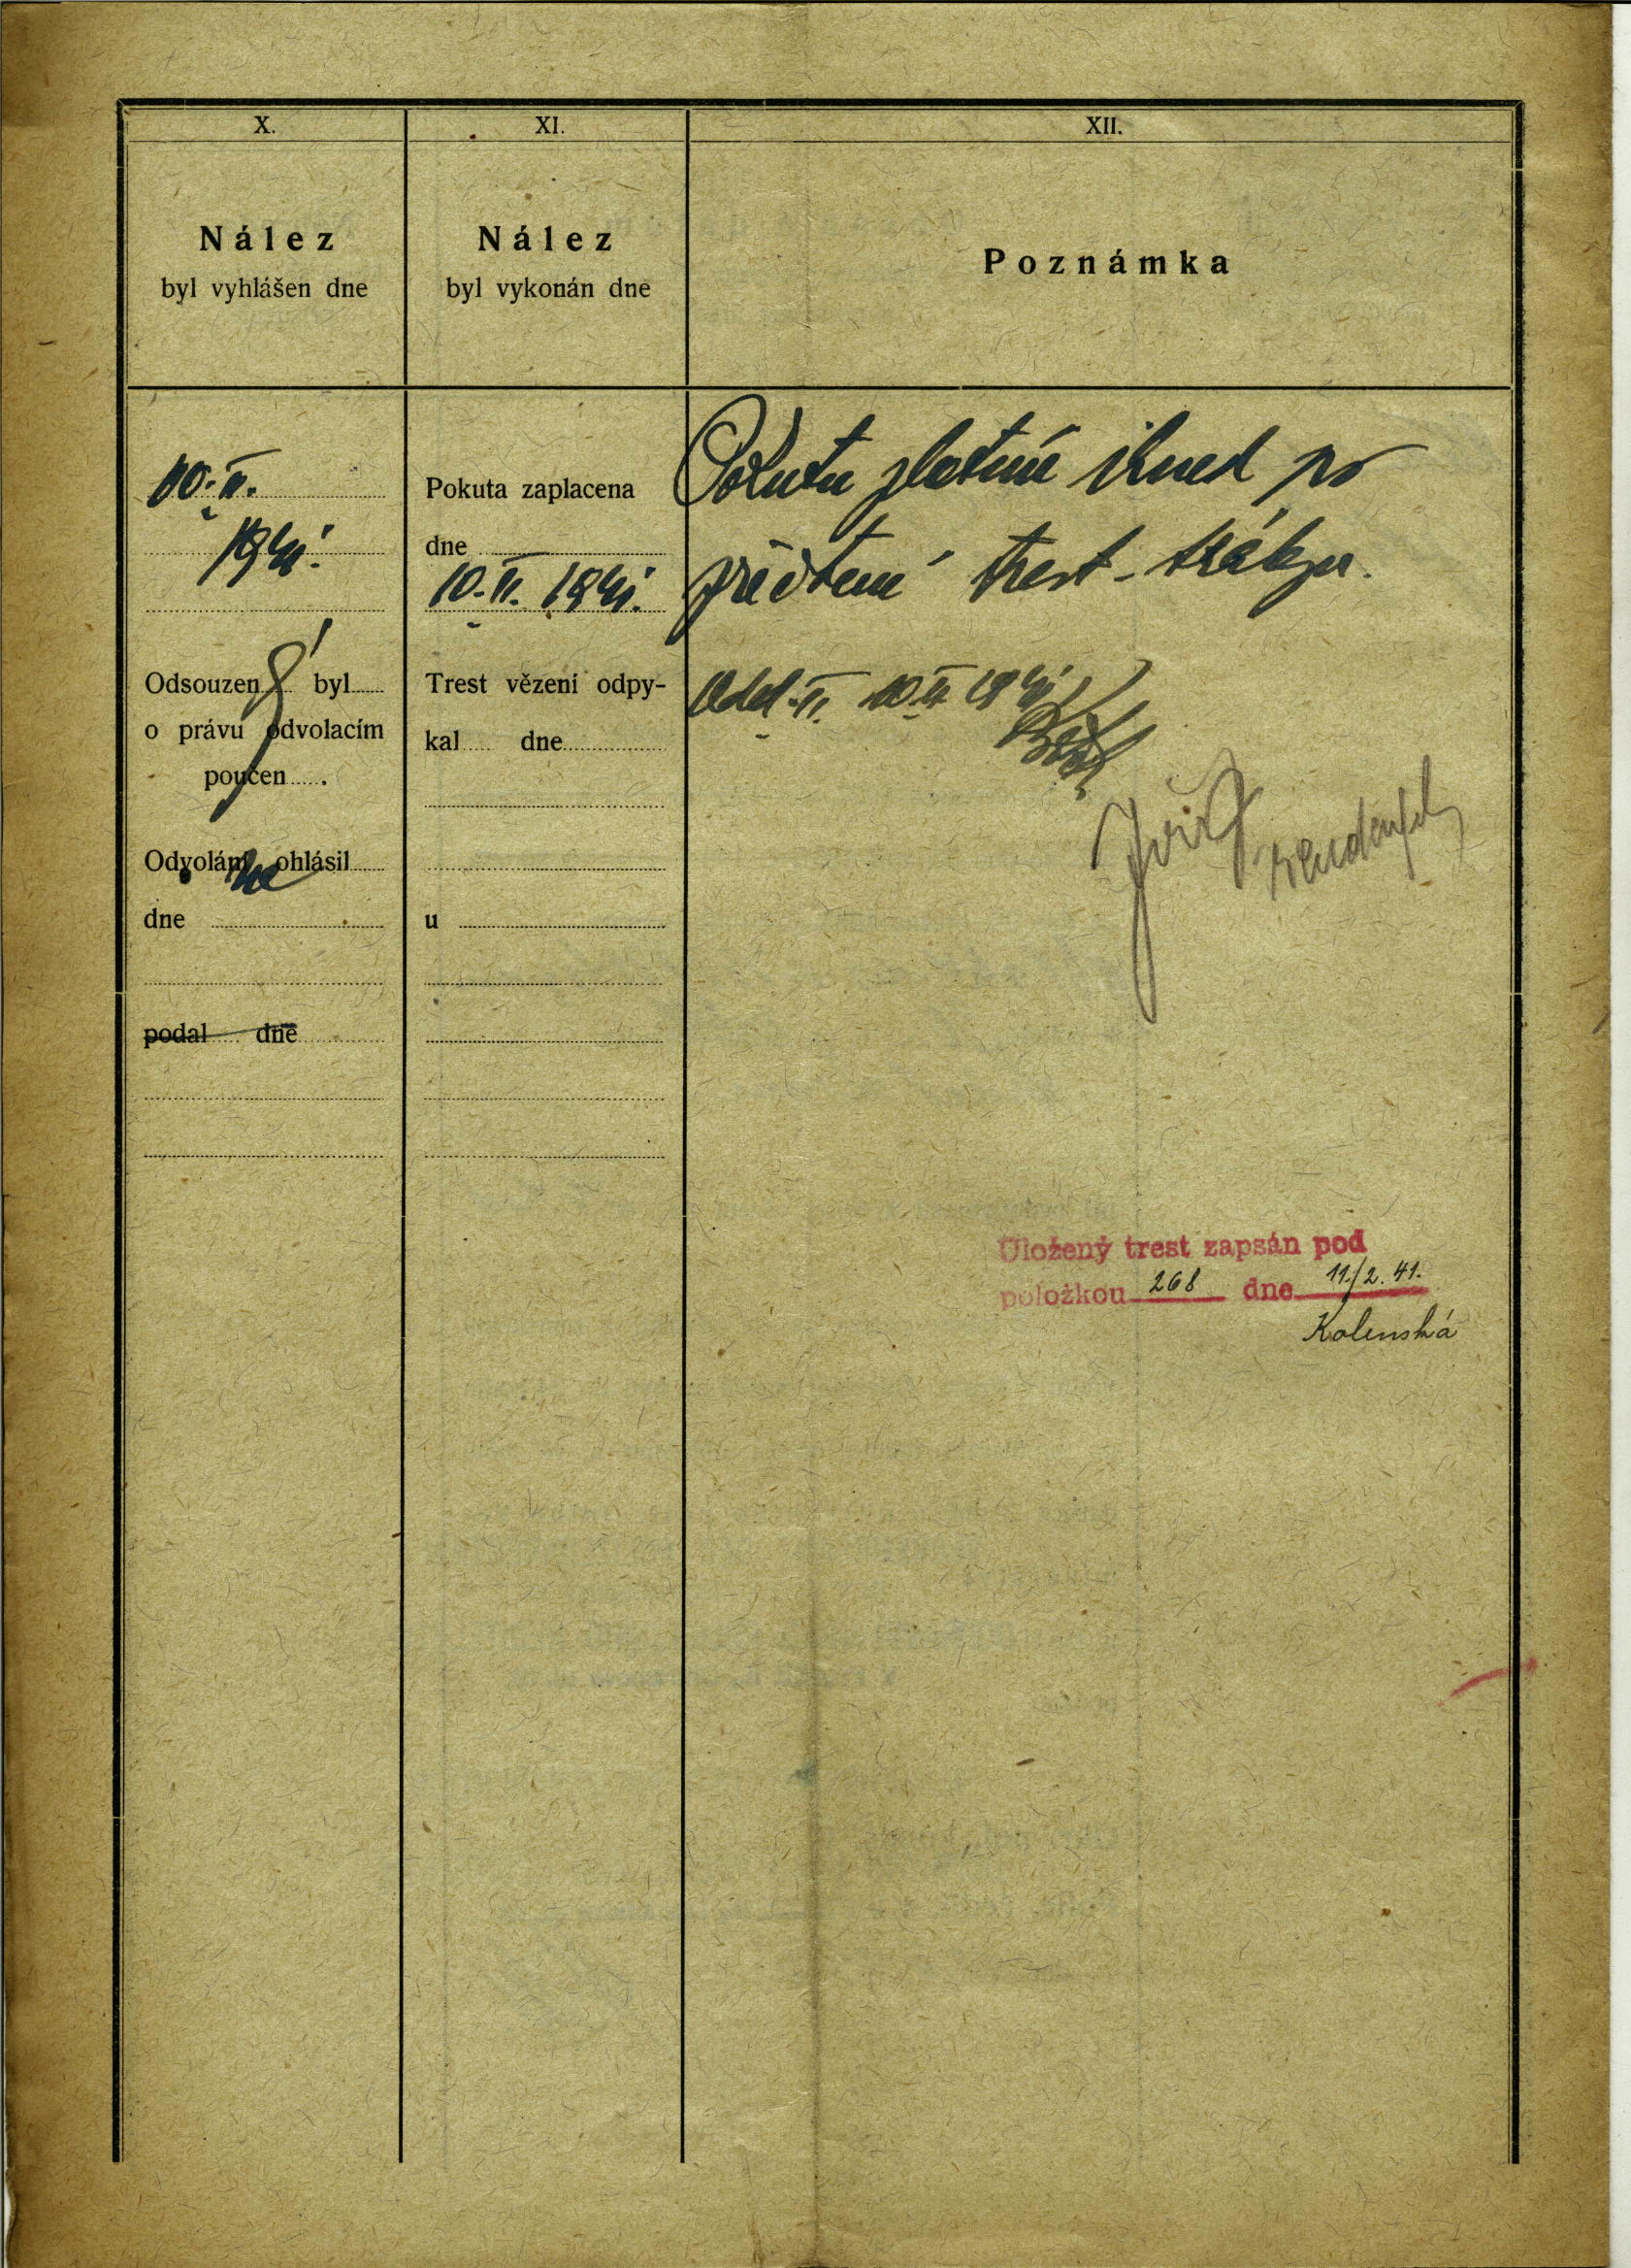 X.
Nález
byl vyhlášen dne
10. II.
1941.
Odsouzen ý byl
o právu odvolacím
poučen .
Odvolání ne ohlásil
dne
podal dne
XI.
Nález
byl vykonán dne
Pokuta zaplacena
dne
10. II. 1941.
Trest vězení odpy-
kal dne
u
XII.
Poznámka
Pokutu ihned po
přečtení trest.
Odd. II. 10. II. 1941
Jiří
Uložený trest zapsán pod
položkou 268 dne 11./2. 41.
Kolenská